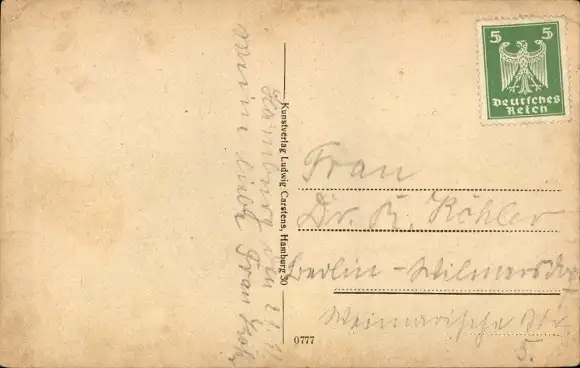 Hamburg den 21. 9.
Meine liebe Frau
Kunstverlag Ludwig Carstens, Hamburg 30
5 5
Deutsches
Reich
Frau
Dr. K. Köhler
Berlin - Wilmersdf
Weimarische Str.
5.
0777